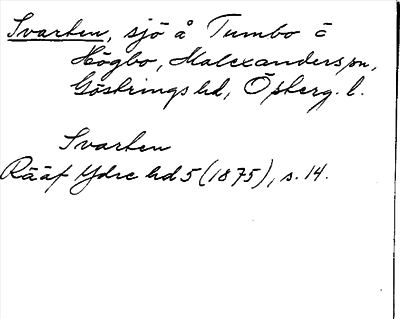 Svarten, sjö å Tumbo o
Högbo, Malexanders sn,
Göstrings hd, Östergl. l.
Svarten
Rääf Ydre hd 5 (1875), s. 14.